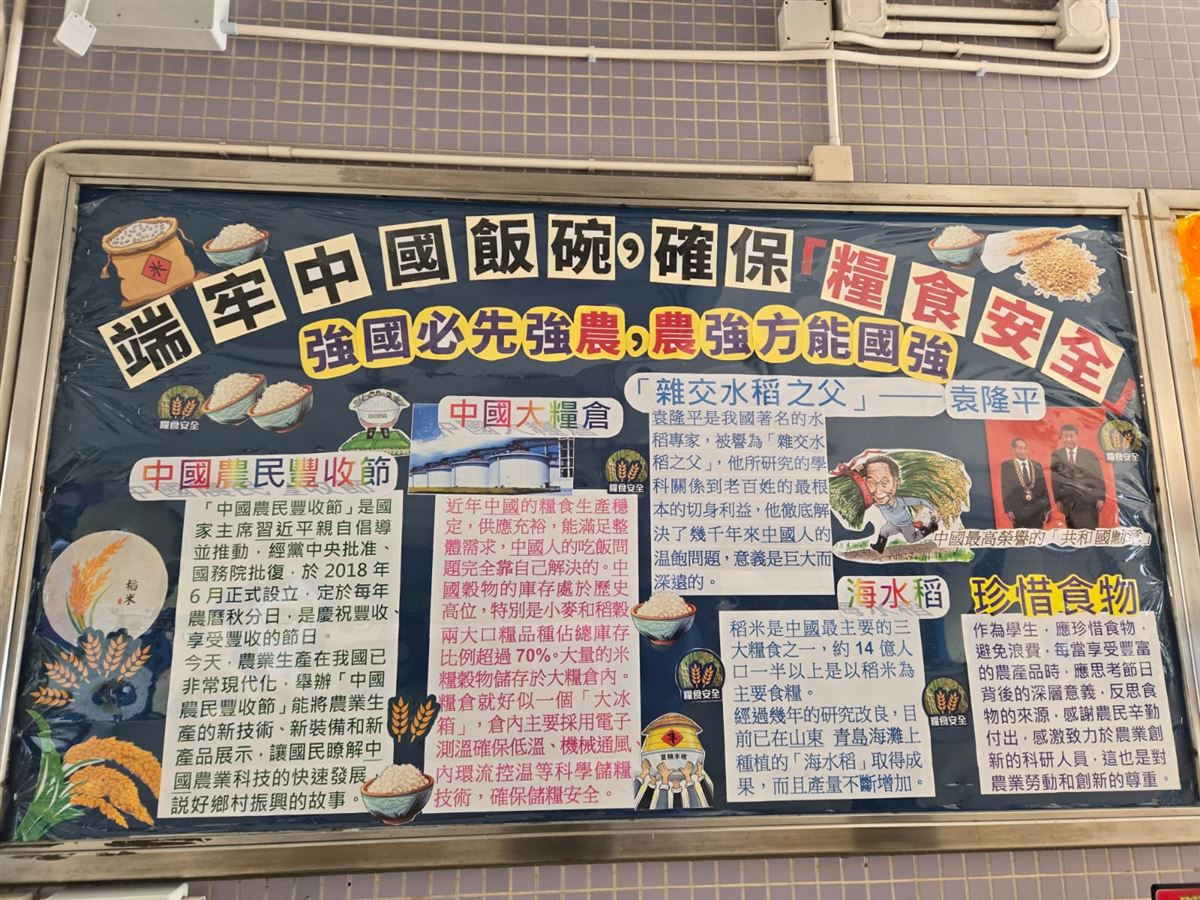 端牢中國飯碗，確保「糧食安全」
強國必先強農，農強方能國強
米
糧食安全
中國農民豐收節
「中國農民豐收節」是國
家主席習近平親自倡導
並推動，經黨中央批准、
國務院批復，於 2018 年
6 月正式設立，定於每年
農曆秋分日，是慶祝豐收、
享受豐收的節日。
今天，農業生產在我國已
非常現代化，舉辦「中國
農民豐收節」能將農業生
產的新技術、新裝備和新
產品展示，讓國民瞭解中
國農業科技的快速發展，
說好鄉村振興的故事。
稻米
中國大糧倉
糧食安全
近年中國的糧食生產穩
定，供應充裕，能滿足整
體需求，中國人的吃飯問
題完全靠自己解決的。中
國穀物的庫存處於歷史
高位，特別是小麥和稻穀
兩大口糧品種佔總庫存
比例超過 70%。大量的米
糧穀物儲存於大糧倉內。
糧倉就好似一個「大冰
箱」，倉內主要採用電子
測溫確保低溫、機械通風
內環流控溫等科學儲糧
技術，確保儲糧安全。
「雜交水稻之父」——袁隆平
袁隆平是我國著名的水
稻專家，被譽為「雜交水
稻之父」，他所研究的學
科關係到老百姓的最根
本的切身利益，他徹底解
決了幾千年來中國人的
溫飽問題，意義是巨大而
深遠的。
糧食安全
中國最高榮譽的「共和國勳章」
糧食安全
豐
海水稻
稻米是中國最主要的三
大糧食之一，約 14 億人
口一半以上是以稻米為
主要食糧。
經過幾年的研究改良，目
前已在山東 青島海灘上
種植的「海水稻」取得成
果，而且產量不斷增加。
糧食安全
珍惜食物
作為學生，應珍惜食物，
避免浪費，每當享受豐富
的農產品時，應思考節日
背後的深層意義，反思食
物的來源，感謝農民辛勤
付出，感激致力於農業創
新的科研人員，這也是對
農業勞動和創新的尊重。